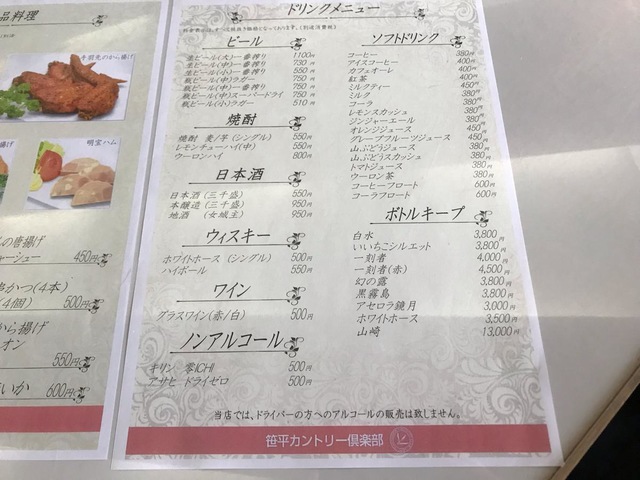 品料理
手羽先のから揚げ
揚げ
明宝ハム
の唐揚げ
ャーシュー 450円
串かつ(4本)
(4個) 500円
から揚げ
オン
550円
いか 600円
ドリンクメニュー
ビール
生ビール(大)一番搾り 1100円
生ビール(中)一番搾り 730円
生ビール(小)一番搾り 550円
瓶ビール(中)ラガー 750円
瓶ビール(中)一番搾り 750円
瓶ビール(中)スーパードライ 750円
瓶ビール(小)ラガー 510円
焼酎
焼酎 麦/芋(シングル) 550円
レモンチューハイ(中) 550円
ウーロンハイ 800円
日本酒
日本酒(三千盛) 550円
本醸造(三千盛) 950円
地酒 (女城主) 950円
ウィスキー
ホワイトホース(シングル) 500円
ハイボール 550円
ワイン
グラスワイン(赤/白) 500円
ノンアルコール
キリン 零ICHI 500円
アサヒ ドライゼロ 500円
ソフトドリンク
コーヒー 380円
アイスコーヒー 400円
カフェオーレ 400円
紅茶 400円
ミルクティー 450円
ミルク 380円
コーラ 380円
レモンスカッシュ 380円
ジンジャーエール 380円
オレンジジュース 450円
グレープフルーツジュース 450円
山ぶどうジュース 380円
山ぶどうスカッシュ 380円
トマトジュース 380円
ウーロン茶 380円
コーヒーフロート 600円
コーラフロート 600円
ボトルキープ
白水 3,800円
いいちこシルエット 3,800円
一刻者 4,000円
一刻者(赤) 4,500円
幻の露 3,800円
黒霧島 3,800円
アセロラ鏡月 3,000円
ホワイトホース 3,500円
山崎 13,000円
当店では、ドライバーの方へのアルコールの販売は致しません。
笹平カントリー倶楽部